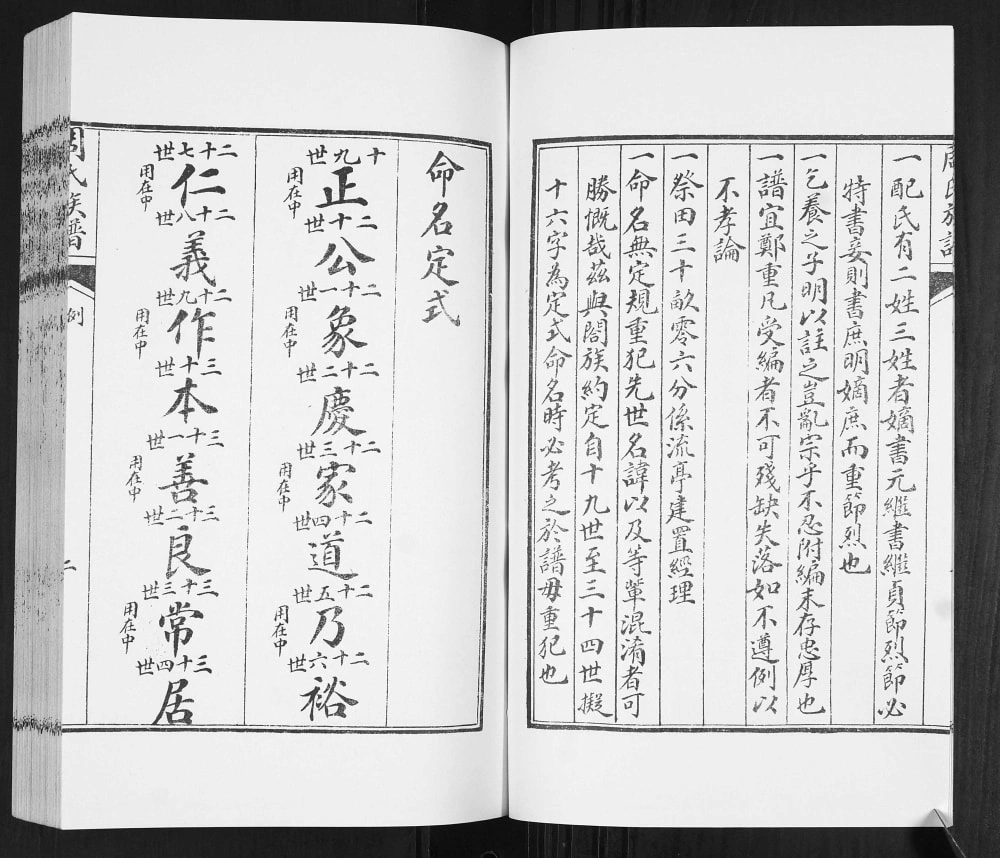 一配氏有二姓三姓者嫡書元繼書繼貞節烈節必
特書妾則書庶明嫡庶而重節烈也
一乞養之子明以註之豈亂宗乎不忍附編末存忠厚也
一譜宜鄭重凡受編者不可殘缺失落如不遵例以
不孝論
一祭田三十畝零六分係流亭建置經理
一命名無定規重犯先世名諱以及等輩混淆者可
勝慨哉茲與閤族約定自十九世至三十四世擬
十六字為定式命名時必考之於譜毋重犯也
命名定式
十九世
正
用在中
二十世
公
二十一世
象
用在中
二十二世
慶
二十三世
家
用在中
二十四世
道
二十五世
乃
用在中
二十六世
裕
二十七世
仁
用在中
二十八世
義
二十九世
作
用在中
三十世
本
三十一世
善
用在中
三十二世
良
三十三世
常
用在中
三十四世
居
周氏族譜
例
二